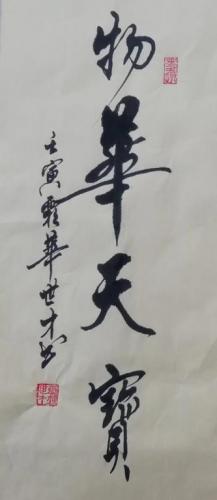 物華天寶
壬寅 華世才書